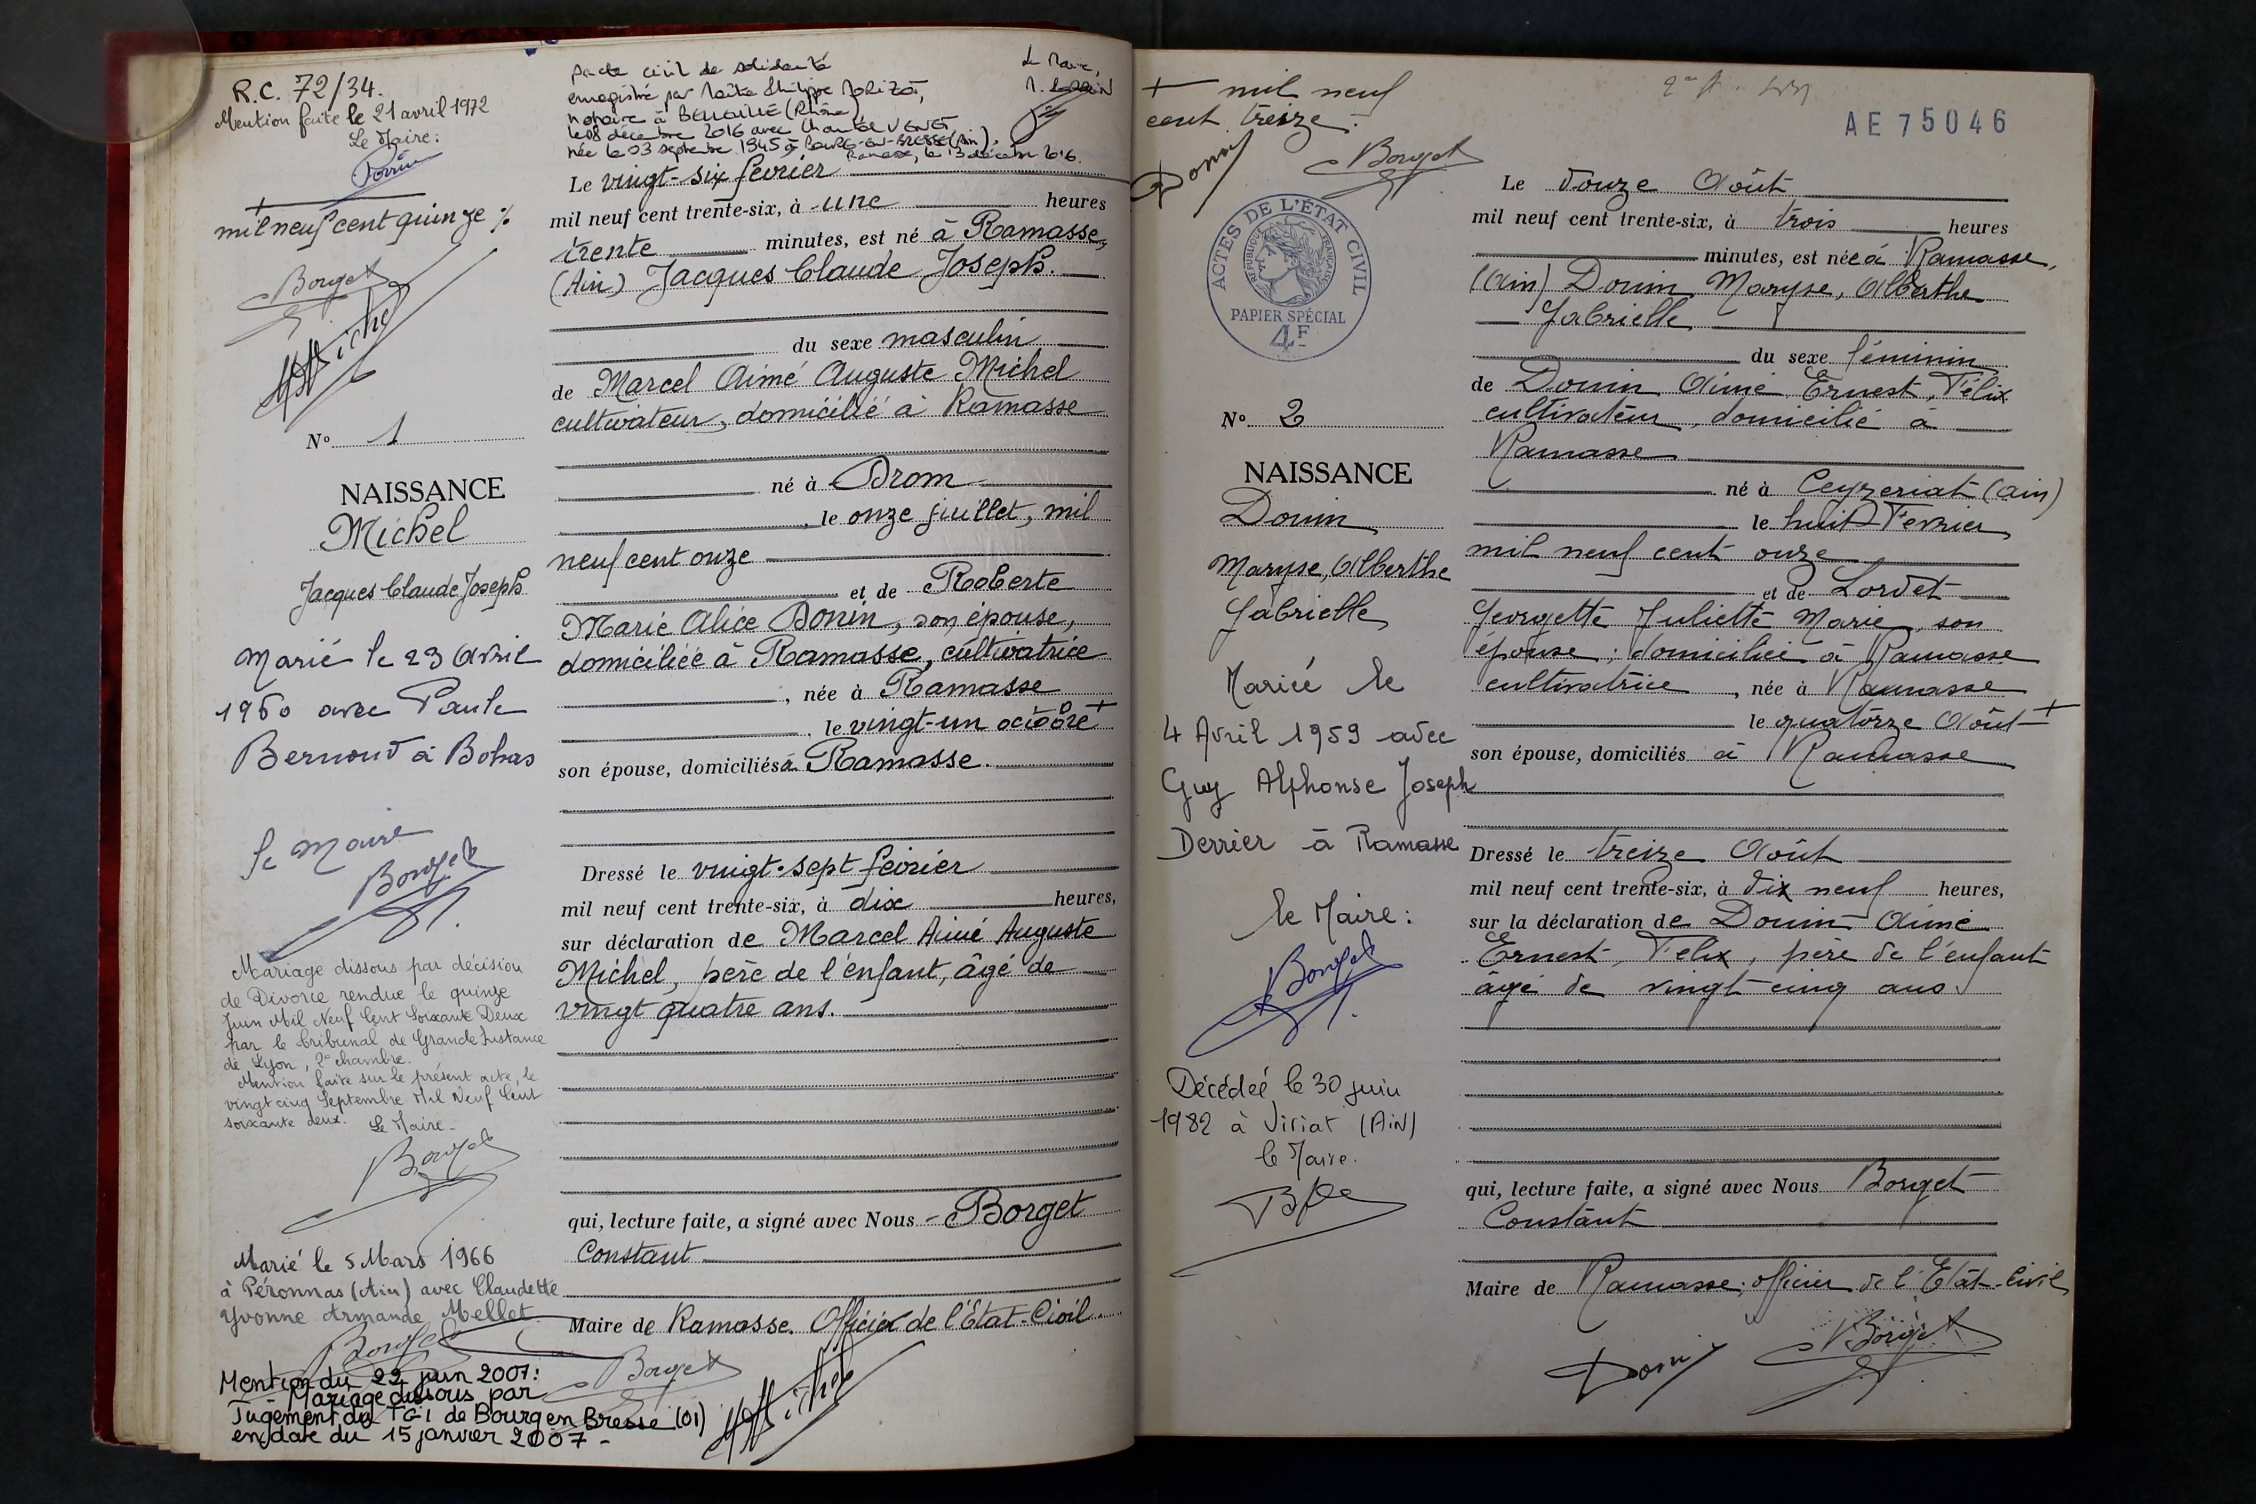 R.C. 72/34.
Mention faite le 21 avril 1972
Le Maire:
+
mil neuf cent quinze
Borget
Michel
N° 1
NAISSANCE
Michel
Jacques Claude Joseph
Marié le 23 Avril
1960 avec Paule
Bernoud à Bohas
le Maire
Borget
Mariage dissous par décision
de Divorce rendue le quinze
Juin Mil Neuf Cent Soixante Deux
par le tribunal de Grande Instance
de Lyon, 2e chambre.
Mention faite sur le présent acte, le
vingt cinq Septembre Mil Neuf Cent
soixante deux. Le Maire-
Borget
Marié le 5 Mars 1966
à Péronnas (Ain) avec Claudette
Yvonne Armande Mellet
Borget
Mention du 22 juin 2007:
Mariage dissous par
Jugement du TGI de Bourg en Bresse (01)
en date du 15 janvier 2007-
Pacte civil de solidarité
enregistré par Maître Philippe
notaire à (Rhône)
le 08 décembre 2016 avec Chantal VENET
née le 03 septembre 1945 à BOURG-EN-BRESSE (Ain).
Ramasse, le 13 décembre 2016.
Le Maire,
Le vingt-six février
mil neuf cent trente-six, à une heures
trente minutes, est né à Ramasse,
(Ain) Jacques Claude Joseph.
du sexe masculin
de Marcel Aimé Auguste Michel
cultivateur, domicilié à Ramasse
né à Drom
, le onze juillet, mil
neuf cent onze
et de Roberte
Marie Alice Donin, son épouse,
domiciliée à Ramasse, cultivatrice
, née à Ramasse
, le vingt-un octobre +
son épouse, domiciliés à Ramasse.
Dressé le vingt-sept février
mil neuf cent trente-six, à dix heures,
sur déclaration de Marcel Aimé Auguste
Michel, père de l'enfant, âgé de
vingt quatre ans.
qui, lecture faite, a signé avec Nous - Borget
Constant
Maire de Ramasse. Officier de l'Etat-Civil.
Borget
Michel
+ mil neuf
cent treize.
Donin
Borget
AE 75046
ACTES DE L'ÉTAT CIVIL
RÉPUBLIQUE FRANÇAISE
PAPIER SPÉCIAL
4F
N° 2
NAISSANCE
Donin
Maryse, Alberthe
Gabrielle
Mariée le
4 Avril 1959 avec
Guy Alphonse Joseph
Derrier à Ramasse
le Maire:
Borget
Décédée le 30 juin
1982 à Viriat (AiN)
le Maire.
Le douze Août
mil neuf cent trente-six, à trois heures
minutes, est née à Ramasse,
(Ain) Donin Maryse, Alberthe
Gabrielle
du sexe féminin
de Donin Aimé Ernest, Félix
cultivateur, domicilié à
Ramasse
né à Ceyzeriat (Ain)
le huit Février
mil neuf cent onze
et de Lordet
Georgette Juliette Marie, son
épouse, domiciliée à Ramasse
cultivatrice, née à Ramasse
le quatorze Août +
son épouse, domiciliés à Ramasse
Dressé le treize Août
mil neuf cent trente-six, à dix neuf heures,
sur la déclaration de Donin Aimé
Ernest, Felix, père de l'enfant
âgé de vingt cinq ans
qui, lecture faite, a signé avec Nous Borget
Constant
Maire de Ramasse, officier de l'Etat-Civil
Donin
Borget